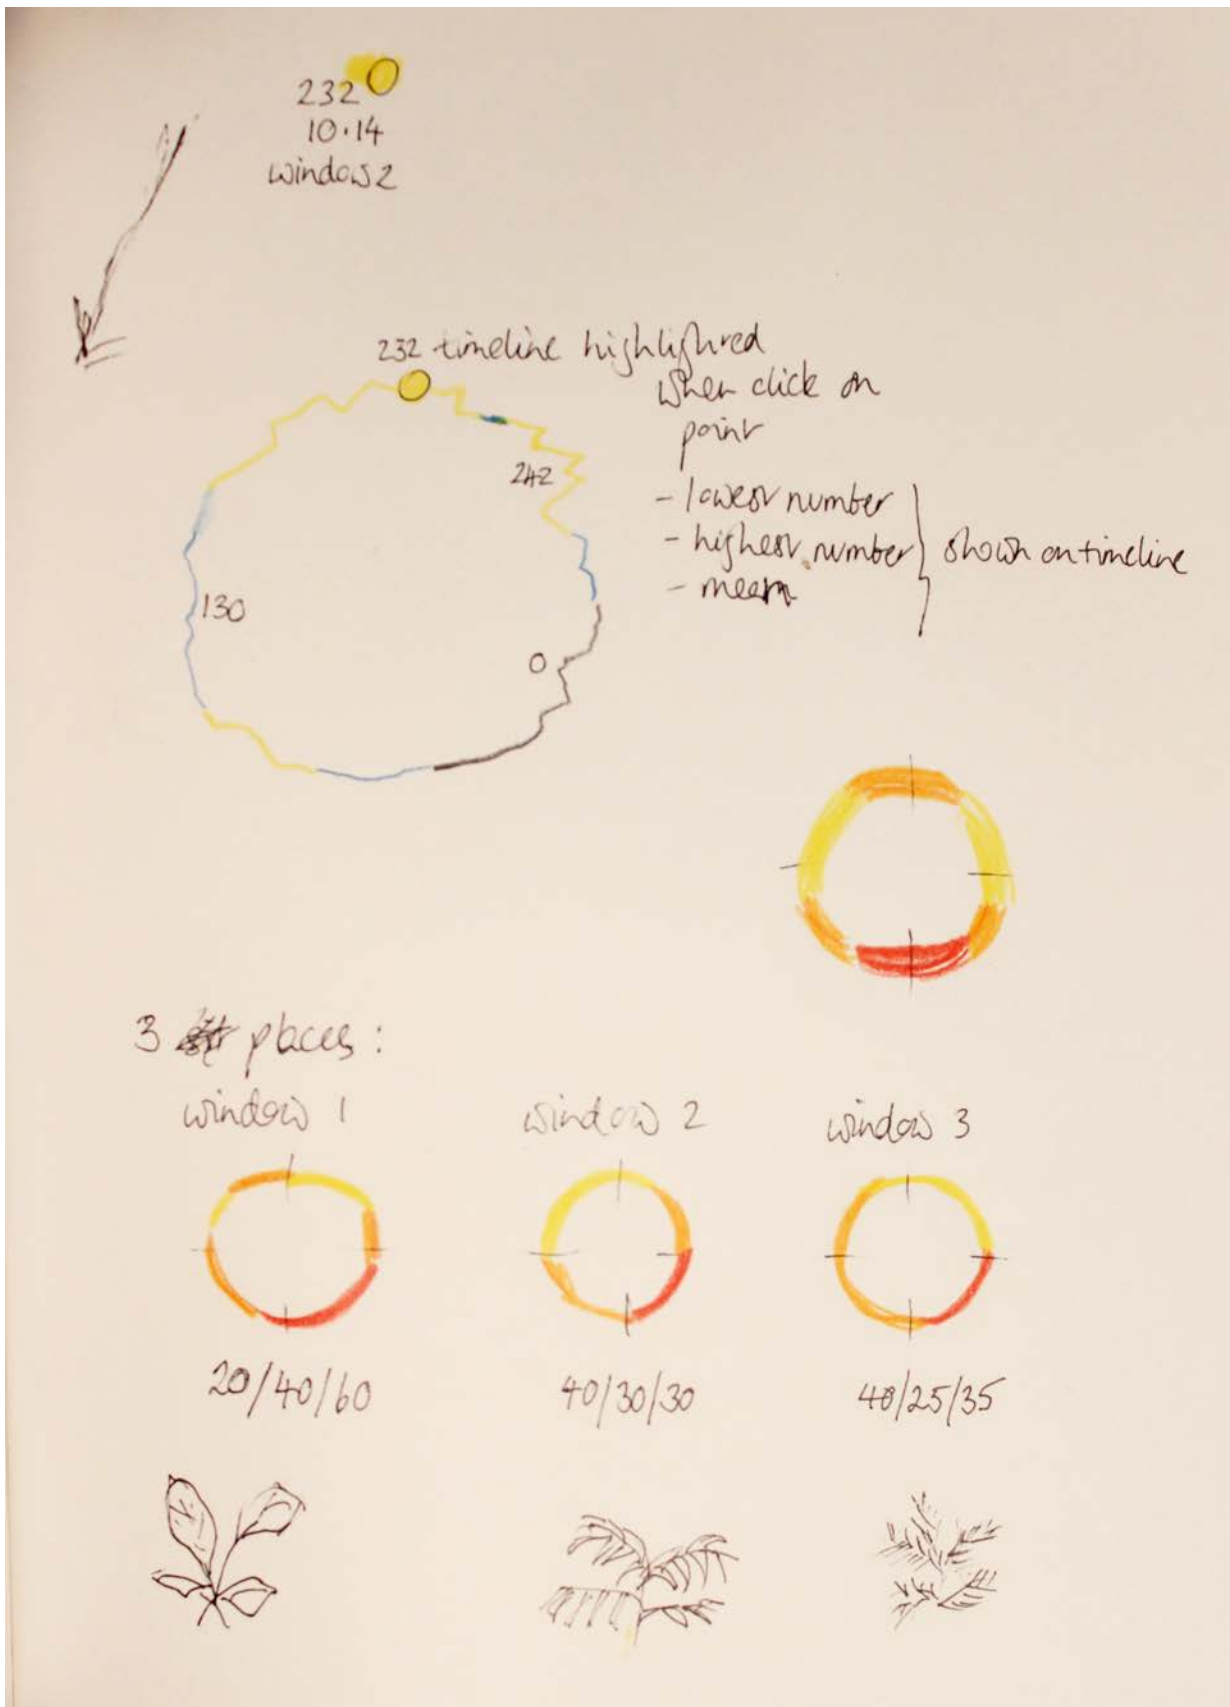 232
10.14
window 2
232 timeline highlighted
when click on
point
242
- lowest number
- highest number
- mean
shown on timeline
130
0
3 places:
window 1
window 2
window 3
20/40/60
40/30/30
40/25/35